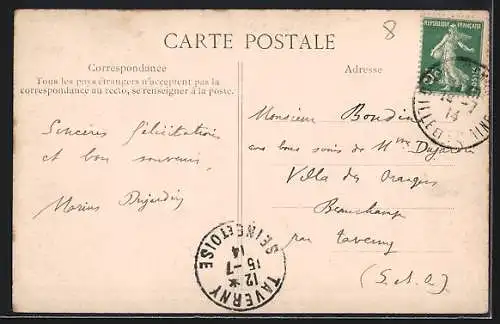 8
CARTE POSTALE
RÉPUBLIQUE FRANÇAISE
Correspondance
Tous les pays étrangers n'acceptent pas la
correspondance au recto, se renseigner à la poste.
Adresse
Sincères félicitations
et bon souvenir
Marius Dujardin
Monsieur Boudin
aux bons soins de Mme Dujardin
Villa des Oranges
Beauchamp
par Taverny
(S. & O.)
14-7
14
TAVERNY
12
15-7
14
SEINE-ET-OISE